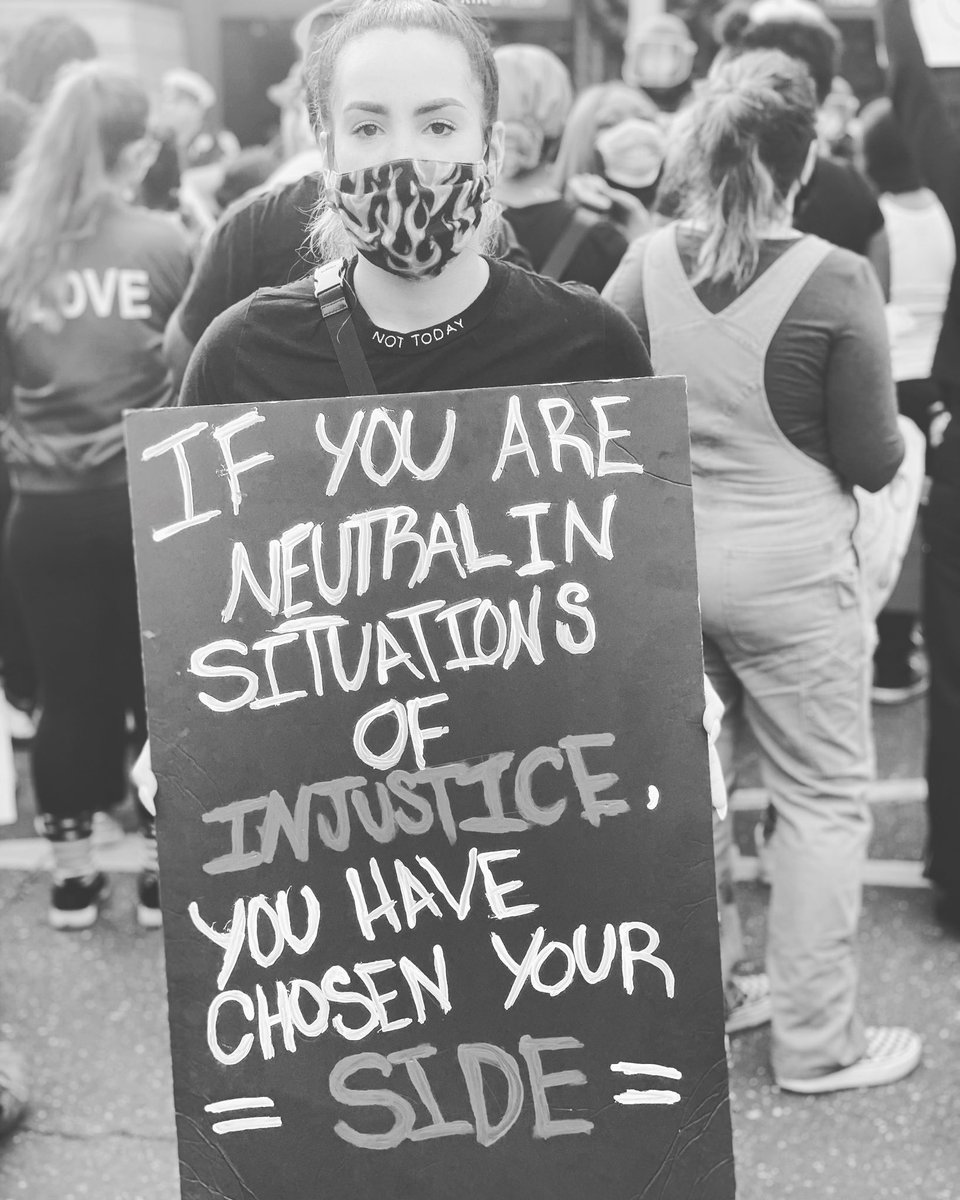 LOVE
NOT TODAY
IF YOU ARE
NEUTRAL IN
SITUATIONS
OF
INJUSTICE,
YOU HAVE
CHOSEN YOUR
= SIDE =